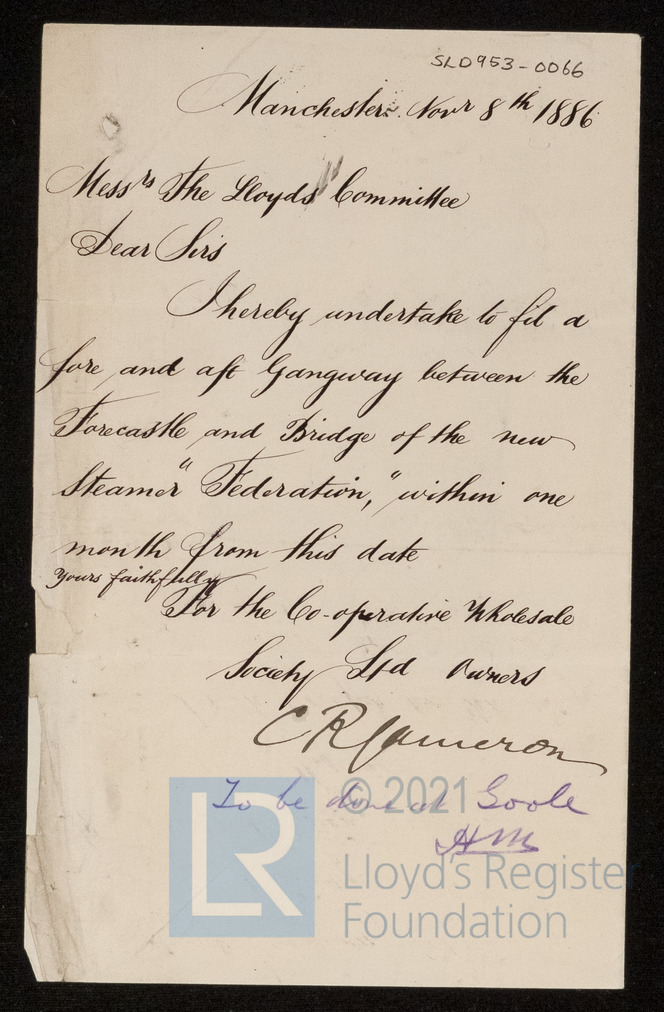 SLD953-0066
Manchester. Novr 8th 1886
Messrs The Lloyds Committee
Dear Sirs
I hereby undertake to fit a
fore and aft Gangway between the
Forecastle and Bridge of the new
Steamer "Federation," within one
month from this date
Yours faithfully
For the Co-operative Wholesale
Society Ltd Owners
C R Cameron
To be done at Goole
HM
LR
© 2021
Lloyd's Register
Foundation